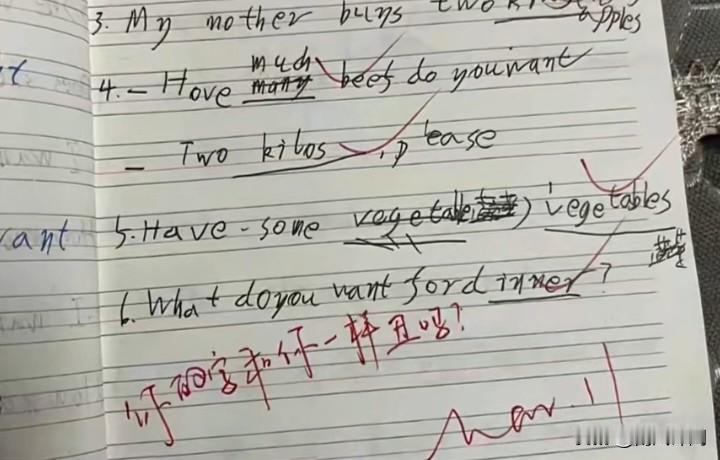 3. My mother buys two ki apples
4. - Hove much many beef do you want
- Two kilos , please
5. Have - some vegetable) vegetables
6. What do you want for dinner?
你的字和你一样丑吗?